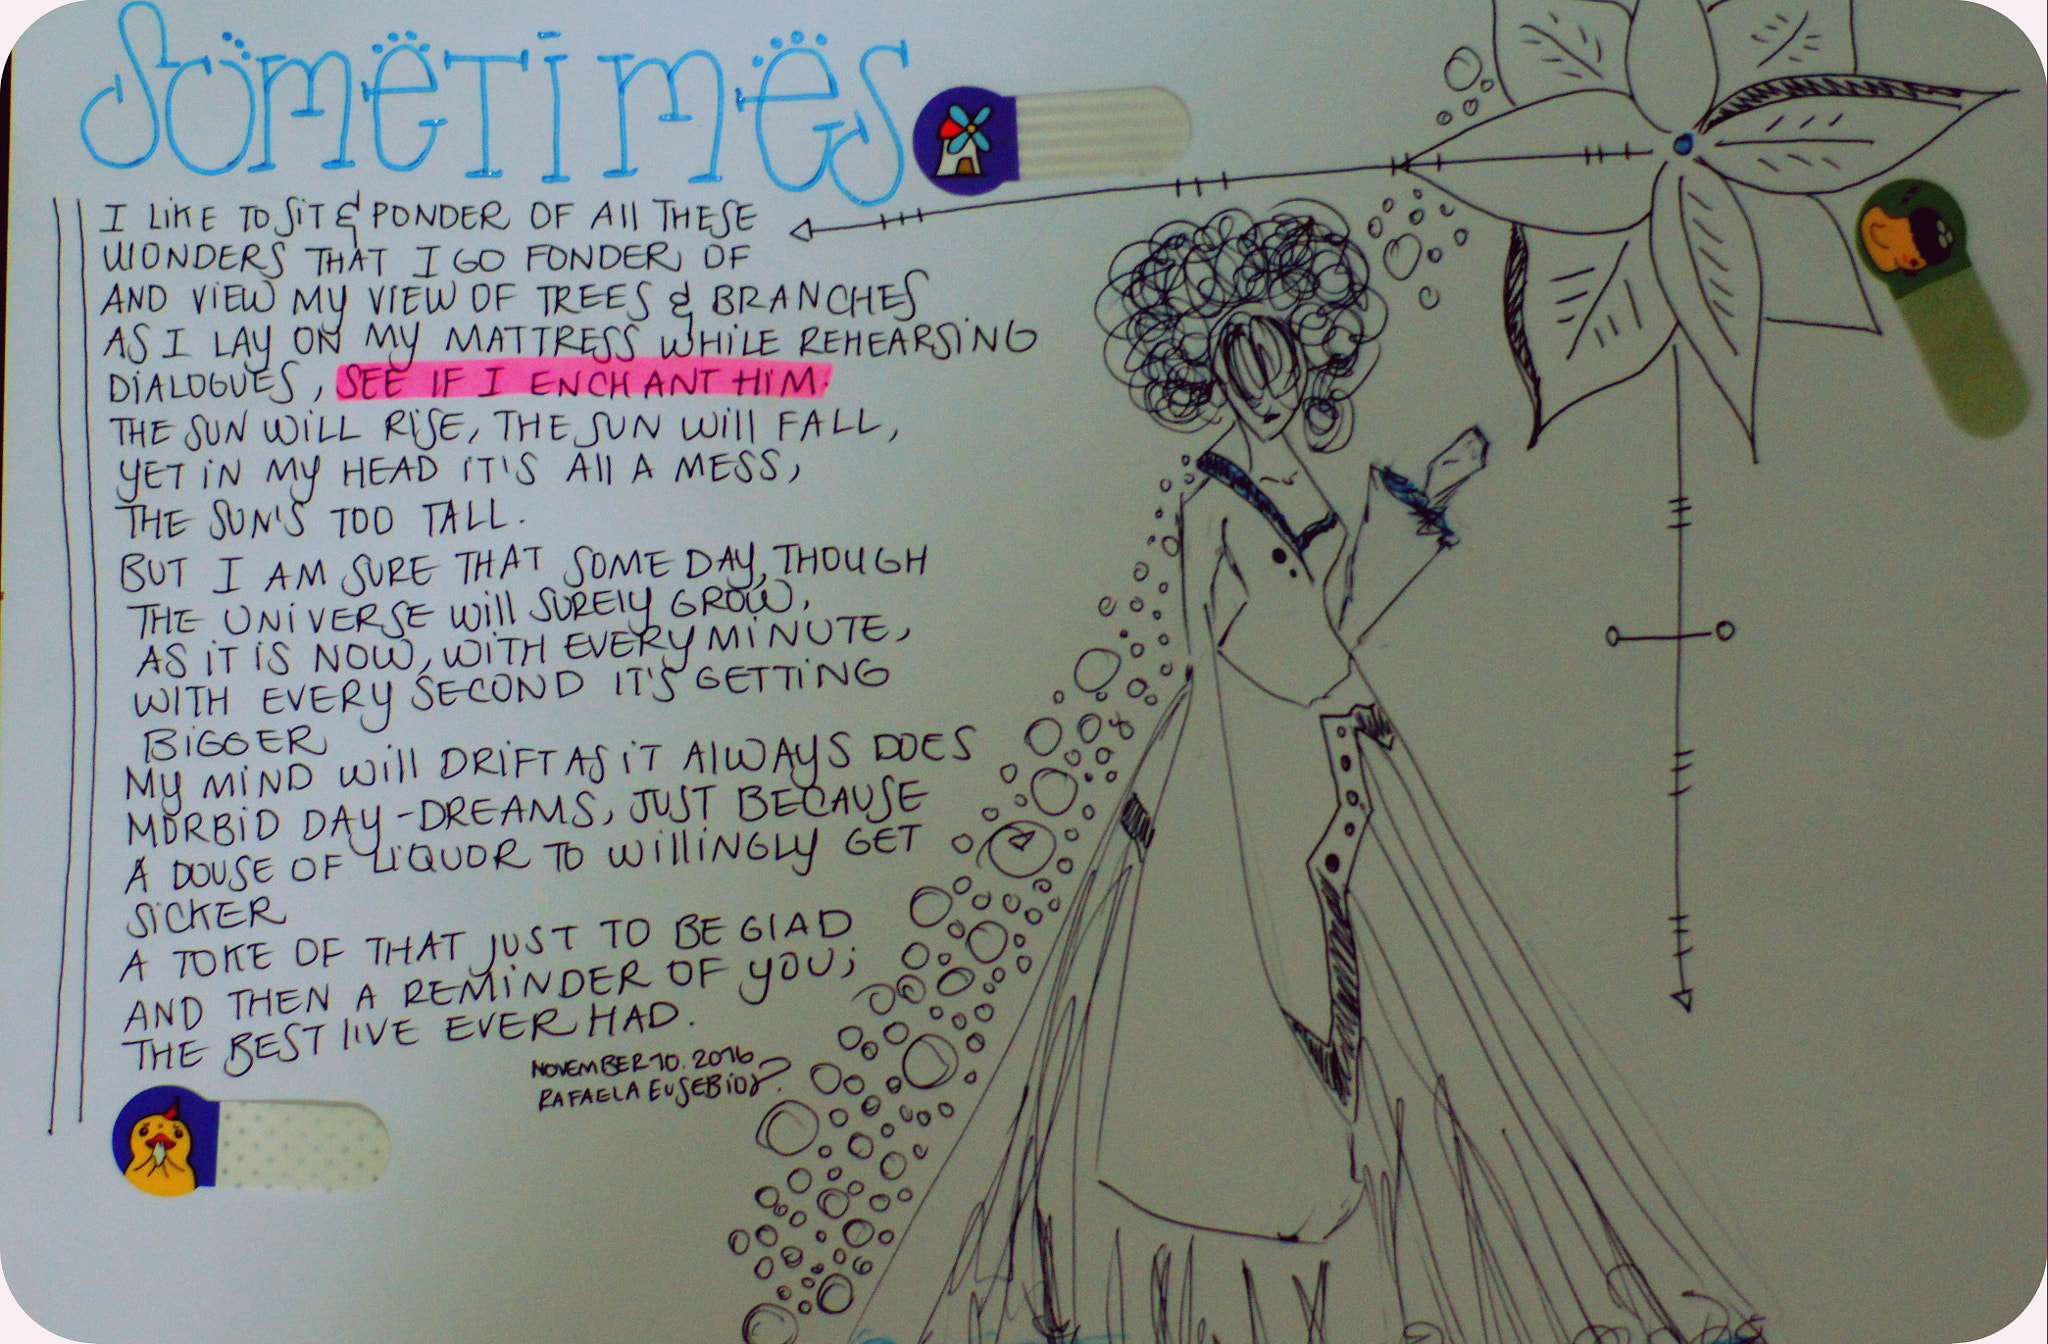 SOMETIMES
I LIKE TO SIT & PONDER OF All THESE
WONDERS THAT I GO FONDER OF
AND VIEW MY VIEW OF TREES & BRANCHES
AS I LAY ON MY MATTRESS WHILE REHEARSING
DIALOGUES, SEE IF I ENCHANT HIM.
THE SUN WILL RISE, THE SUN WIll FALL,
YET IN MY HEAD IT'S All A MESS,
THE SUN'S TOO TALL.
BUT I AM SURE THAT SOME DAY, THOUGH
THE UNIVERSE WIll SURELY GROW,
AS IT IS NOW, WITH EVERY MINUTE,
WITH EVERY SECOND IT'S GETTING
BIGGER
MY MIND WIll DRIFT AS IT AlWAYS DOES
MORBID DAY-DREAMS, JUST BECAUSE
A DOUSE OF LIQUOR TO WIllINGLY GET
SICKER
A TOKE OF THAT JUST TO BE GlAD
AND THEN A REMINDER OF YOU;
THE BEST lIVE EVER HAD.
NOVEMBER 10. 2016
RAFAELA EUSEBIO